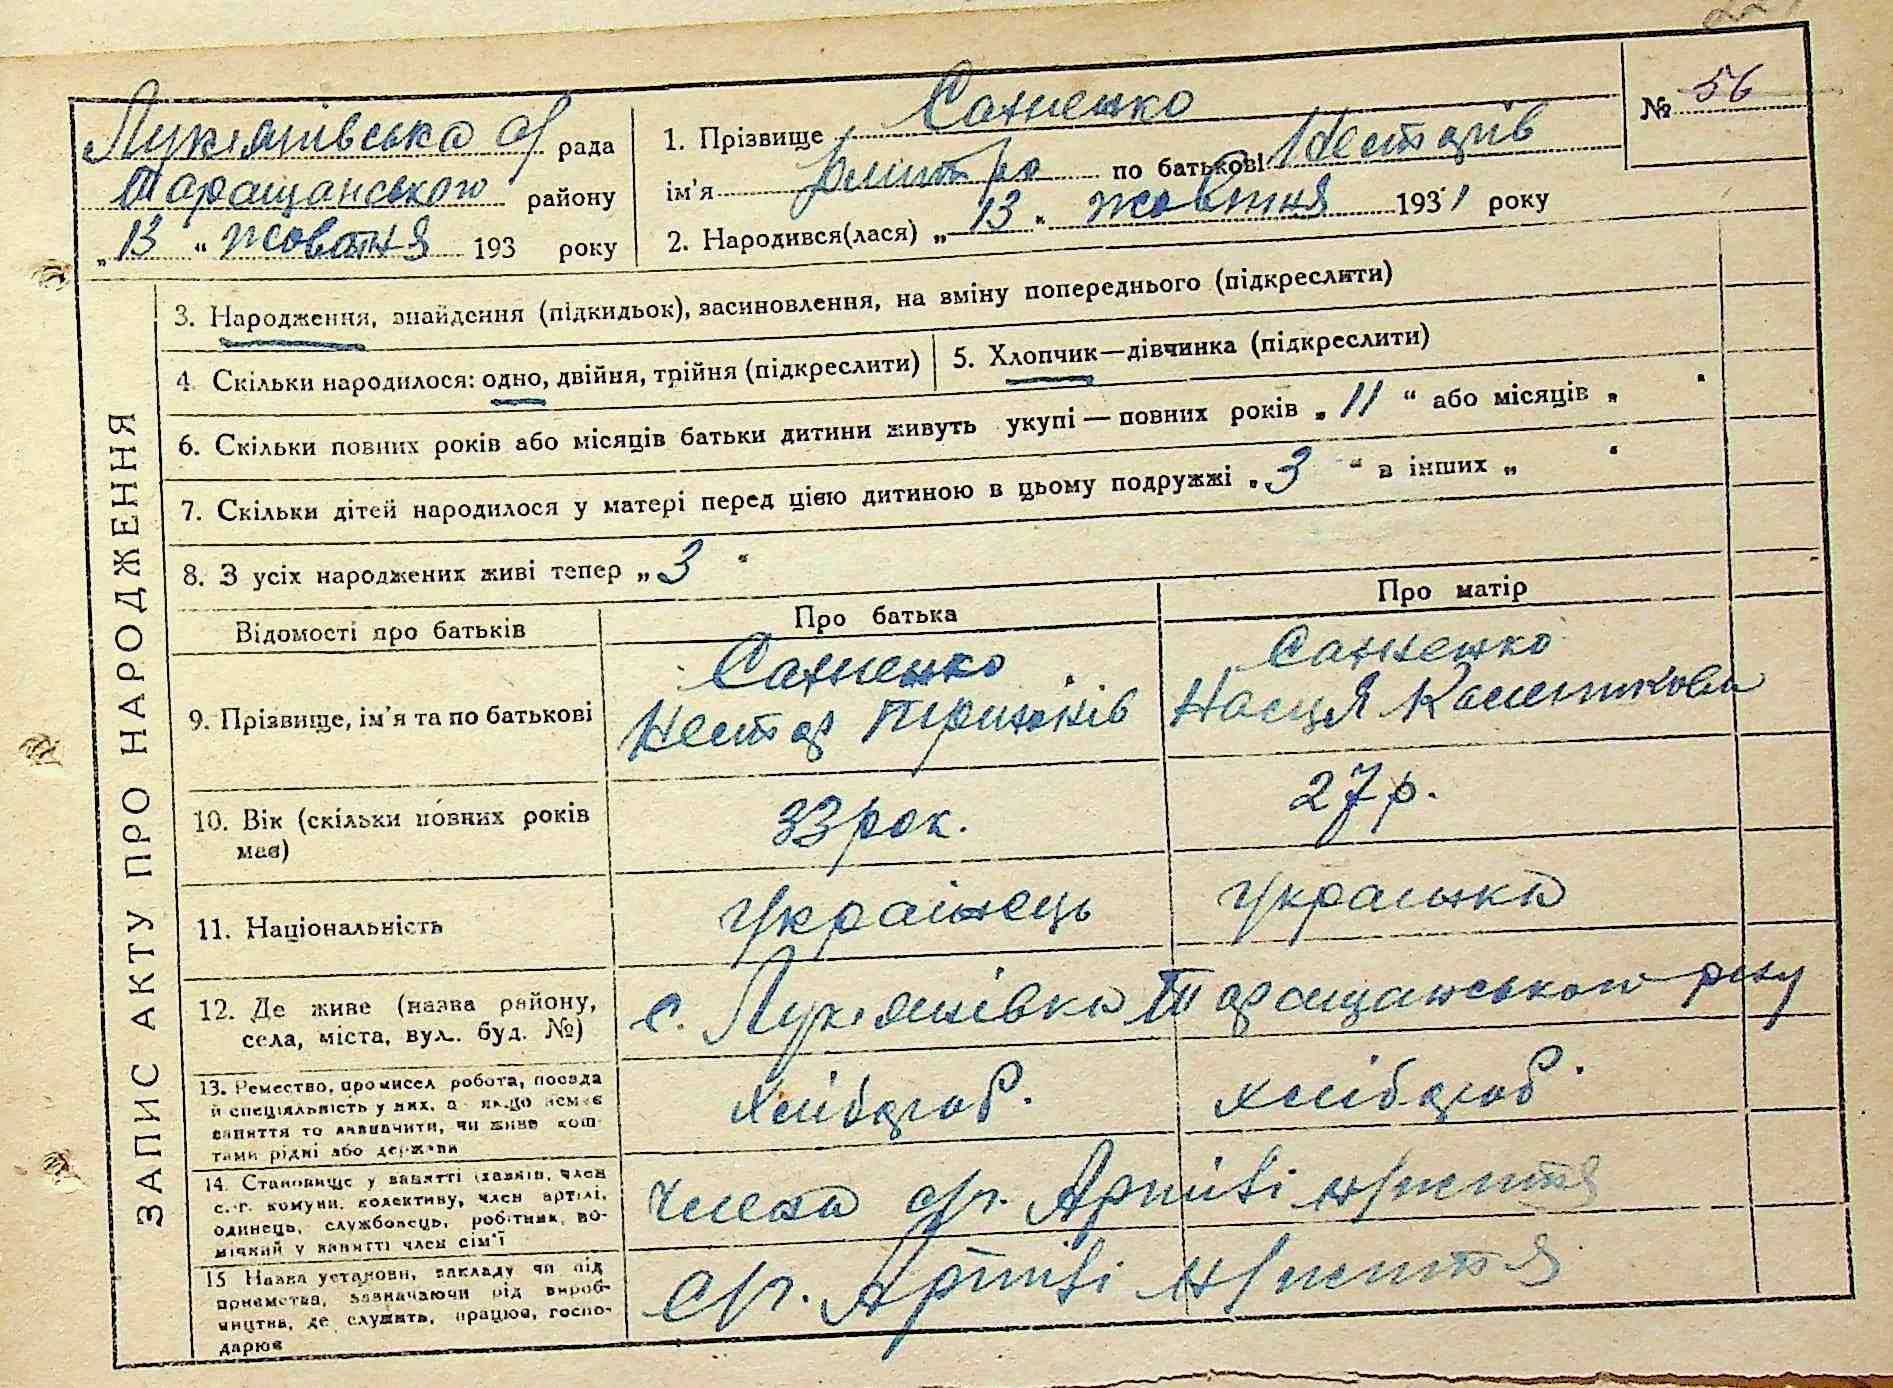 № 56
Лук'янівська с/ рада
Таращанського району
„13“ жовтня 193 року
1. Прізвище Сахненко
ім'я Дмитро по батькові Несторів
2. Народився(лася) „13“ жовтня 1931 року
ЗАПИС АКТУ ПРО НАРОДЖЕННЯ
3. Народження, знайдення (підкидьок), засиновлення, на зміну попереднього (підкреслити)
4. Скільки народилося: одно, двійня, трійня (підкреслити)
5. Хлопчик—дівчинка (підкреслити)
6. Скільки повних років або місяців батьки дитини живуть укупі — повних років „11“ або місяців „ “
7. Скільки дітей народилося у матері перед цією дитиною в цьому подружжі „3“ в інших „ “
8. З усіх народжених живі тепер „3“
Відомості про батьків
Про батька
Про матір
9. Прізвище, ім'я та по батькові
Сахненко
Нестор
Сахненко
Настя
10. Вік (скільки повних років
має)
33 рок.
27 р.
11. Національність
Українець
Українка
12. Де живе (назва району,
села, міста, вул. буд. №)
с. Лук'янівка Таращанського р-ну
13. Ремество, промисел робота, посада
й спеціяльність у них, а якщо немає
заняття то зазначити, чи живе кош-
тами рідні або держави
хлібороб.
хлібороб.
14. Становище у занятті (хазяїн, член
с.-г. комуни, колективу, член артілі,
одинець, службовець, робітник, по-
мічний у занятті член сім'ї
члена с/г. Артілі н/життя
15 Назва установи, закладу чи під
приємства, зазначаючи рід вироб-
ництва, де служить, працює, госпо-
дарює
с/г. Артілі н/життя